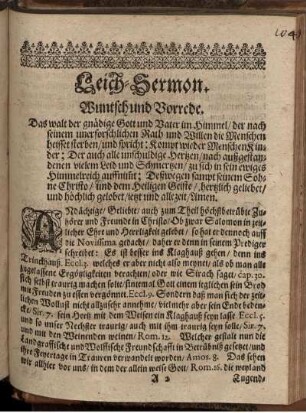 Leich-Sermon.
Wuntsch und Vorrede.
Das walt der gnädige Gott und Vater im Himmel/ der nach
seinem unerforschlichen Rath und Willen die Menschen
heisset sterben/ und spricht: Kompt wieder Menschen Kin-
der: Der auch alle unschuldige Hertzen/ nach außgestan-
denen vielen Leid und Schmertzen/ zu sich in sein ewiges
Himmelreich auffnimt; Deßwegen sampt seinem Soh-
ne Christo/ und dem Heiligen Geiste/ hertzlich geliebet/
und höchlich gelobet/ jetzt und allezeit/ Amen.
ANdächtige/ Geliebte/ auch zum Theil höchstbetrübte Zu-
hörer und Freunde in Christo/ Ob zwar Salomon in zeit-
licher Ehre und Herrligkeit gelebet/ so hat er dennoch auff
die Novissima gedacht/ daher er denn in seinem Prediger
schreibet: Es ist besser ins Klaghauß gehen/ denn ins
Trinckhauß Eccl. 7. welches er aber nicht also meynet/ als ob man alle
zugelassene Ergötzligkeiten verachten/ oder wie Sirach saget/ cap. 30.
sich selbst traurig machen solte/ sintemal Gott einem jeglichen sein Brod
mit Freuden zu essen vergönnet. Eccl. 9. Sondern daß man sich der zeit-
lichen Wollust nicht allzusehr annehme/ vielmehr aber sein Ende beden-
cke/ Sir. 7. sein Hertz mit dem Weisen ein Klaghauß seyn lasse Eccl.
und so unser Nechster traurig/ auch mit ihm traurig seyn solle/ Sir. 7.
und mit den Weinenden weinen/ Rom. 12. Welcher gestalt nun die
Landgraffische und Wolffische Freundschafft in Betrübniß gesetzet/ und
ihre Feyertage in Trawen verwandelt worden/ Amos. 8. Das sehen
wir alhier vor uns/ in dem der allein weise Gott/ Rom. 16. die weyland
A 2 Tugend-